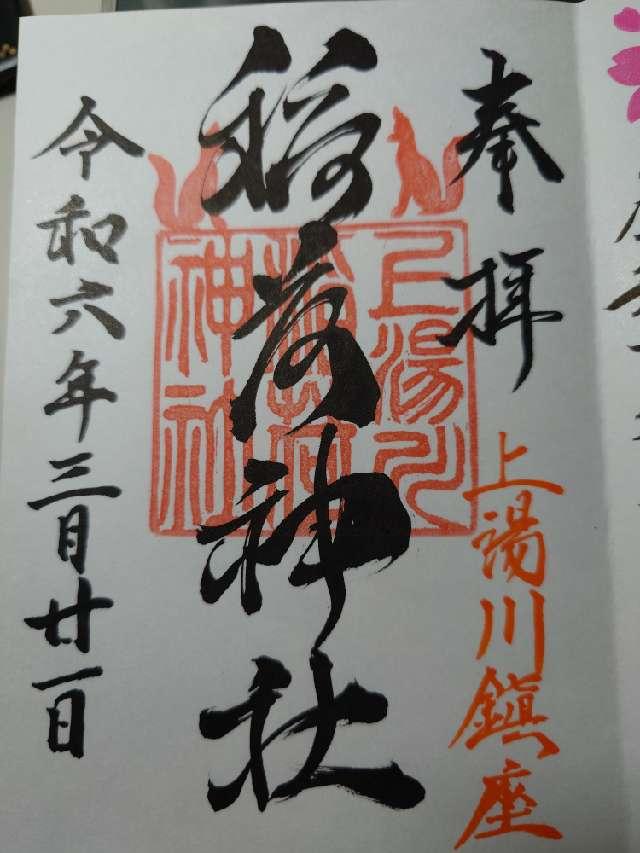 奉拝
上湯川鎮座
稲荷神社
上湯川
稲荷
神社
令和六年三月廿一日